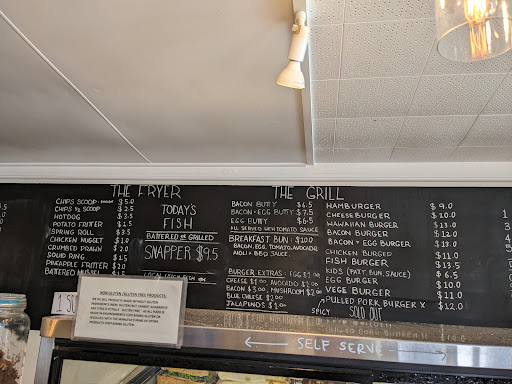 THE FRYER
CHIPS SCOOP $5.0
CHIPS ½ SCOOP $2.5
HOTDOG $3.5
POTATO FRITTER $1.5
SPRING ROLL $3.5
CHICKEN NUGGET $1.0
CRUMBED PRAWN $2.0
SQUID RING $1.5
PINEAPPLE FRITTER $2.0
BATTERED MUSSEL
TODAY'S
FISH
BATTERED OR GRILLED
SNAPPER $9.5
THE GRILL
BACON BUTTY $6.5
BACON + EGG BUTTY $7.5
EGG BUTTY $6.5
ALL SERVED WITH TOMATO SAUCE
BREAKFAST BUN: $10.0
BACON, EGG, TOMATO, AVOCADO,
AIOLI + BBQ SAUCE.
BURGER EXTRAS: EGG $1.00
CHEESE $1.00, AVOCADO $2.00
BACON $3.00, MUSHROOM $2.00
BLUE CHEESE $2.00
JALAPENOS $1.00
HAMBURGER $9.0
CHEESEBURGER $10.0
HAWAIIAN BURGER $11.0
BACON BURGER $12.0
BACON + EGG BURGER $13.0
CHICKEN BURGER $11.0
FISH BURGER $13.5
KIDS (PATTY, BUN, SAUCE) $6.5
EGG BURGER $10.0
VEGE BURGER $11.0
PULLED PORK BURGER X $12.0
SPICY SOLD OUT
NON GLUTEN (GLUTEN FREE) PRODUCTS:
← SELF SERVE →